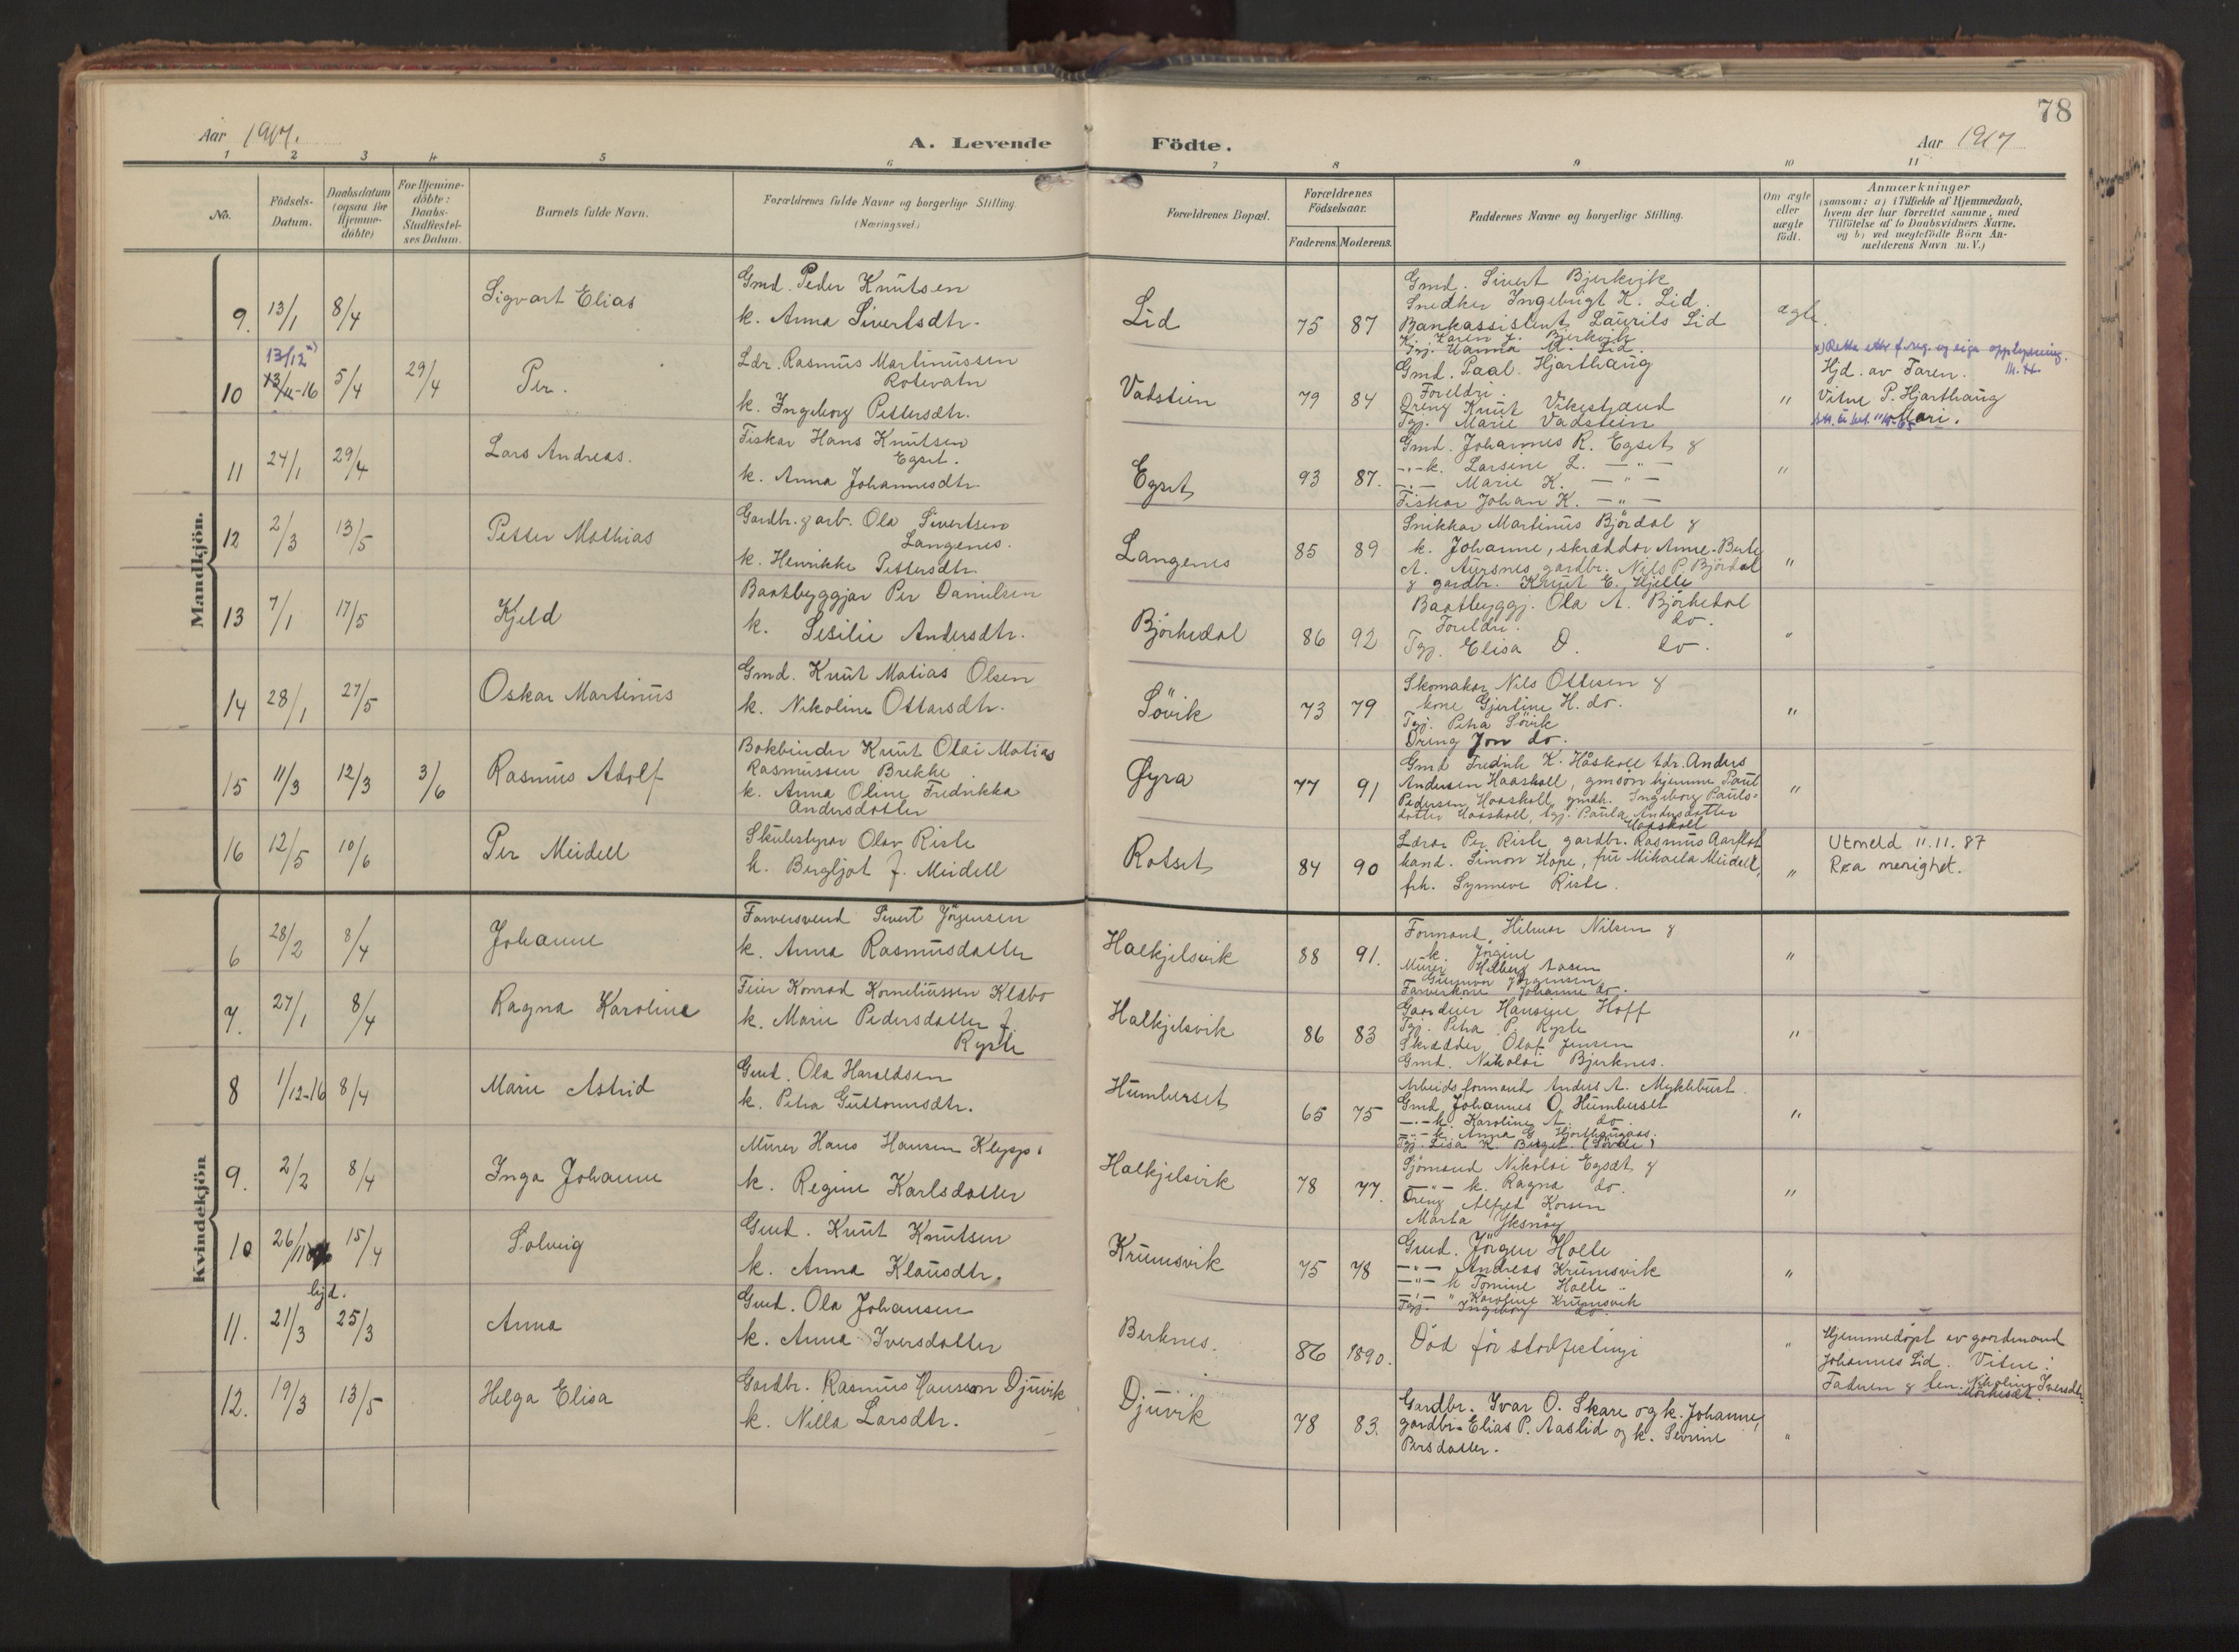 78
Aar 1917.
A. Levende
Födte.
Aar 1917
1 2 3 4 5 6 7 8 9 10 11
No.
Födsels-Datum.
Daabsdatum (ogsaa for Hjemme-döbte)
For Hjemme-döbte: Daabs-Stadfæstel-ses Datum.
Barnets fulde Navn.
Forældrenes fulde Navne og borgerlige Stilling. (Næringsvei.)
Forældrenes Bopæl.
Forældrenes Födselsaar.
Faderens. Moderens.
Faddernes Navne og borgerlige Stilling.
Om ægte eller uægte födt.
Anmærkninger
(saasom: a) i Tilfælde af Hjemmedaab, hvem der har forrettet samme, med Tilföielse af to Daabsvidners Navne, og b) ved uægtefödte Börn An-melderens Navn m. V.)
Mandkjön.
9. 13/1 8/4 Sigvart Elias
Gmd. Peder Knutsen
k. Anna Sivertsdtr.
Lid 75 87
Gmd. Sivert Bjerkvik
Snedker Ingebrigt K. Lid.
Bankassistent Laurits Lid
K. Karen J. Bjerkvik
Tgj. Hanna M. Lid.
ægte.
10 13/12 x) 13/11-16 5/4 29/4 Per.
Ldr. Rasmus Martinussen
Rotevatn
k. Ingeborg Pettersdtr.
Vatstein 79 84
Gmd. Paal Hjarthaug
Foreldri.
Dreng Knut Vikestrand
Tgj. Marie Vadstein
"
x) Retta etter f.reg. og eiga opplysning.
Hjd. av Faren.
Vitne P. Hjarthaug
Mari.
11 24/1 29/4 Lars Andreas.
Fiskar Hans Knutsen
Egset.
k. Anna Johannesdtr.
Egset 93 87.
Gmd. Johannes R. Egset &
-"- k. Larsine L. -"-
-"- Marie K. -"-
Fiskar Johan K. -"-
"
12 2/3 13/5 Petter Mathias
Gardbr. & arb. Ola Sivertsen
Langenes.
k. Henrikke Pettersdtr.
Langenes 85 89
Snikkar Martinus Björdal &
k. Johanne, skræddar Anne-Berte
A. Aursnes, gardbr. Nils P. Björdal
& gardbr. Knut E. Hjelle
"
13 7/1 17/5 Kjeld
Baatbyggjar Per Danielsen
k. Sesilie Andersdtr.
Björkedal 86 92
Baatbyggj. Ola A. Björkedal
Foreldri. do.
Tgj. Elisa D. do.
"
14 28/1 27/5 Oskar Martinus
Gmd. Knut Matias Olsen
k. Nikoline Ottarsdtr.
Sövik 73 79
Skomakar Nils Ottesen &
kone Gjertine H. do.
Tgj. Petra Sövik
Dreng Jon do.
"
15 11/3 12/3 3/6 Rasmus Adolf
Bokbinder Knut Olai Matias
Rasmussen Brekke
k. Anna Oline Fredrikka
Andersdotter
Øyra 77 91
Gmd Fredrik K. Håskoll tdr. Anders
Andersen Haaskoll, gmsøn hjemme Paul
Pedersen Haaskoll, gmdk. Ingeborg Pauls-
dotter Haaskoll, tgj. Paula Andersdotter
Haaskoll
"
16 12/5 10/6 Per Meidell
Skulestyrar Olav Riste
k. Bergljot f. Meidell
Rotset 84 90
Lærar Per Riste, gardbr. Rasmus Aarflot
kand. Simon Hope, fru Mikaela Meidell,
frk. Synneve Riste.
"
Utmeld 11.11.87
Røa menighet.
Kvindekjön
6 28/2 8/4 Johanne
Farversvend Sivert Jörgensen
k. Anna Rasmusdatter
Halkjelsvik 88 91.
Formand Hilmar Nilsen &
k. Jörgine
Murer Hilberg Aasen
Gunnvor Jörgensen
Farverkone Johanne do.
"
7. 27/1 8/4 Ragna Karoline
Feier Konrad Korneliussen Klæbo
k. Marie Pedersdatter f.
Ryste
Halkjelsvik 86 83
Gaardeier Hansine Hoff
Tgj. Petra P. Ryste
Skrædder Olaf Jensen
Gmd. Nikolai Bjerknes.
"
8 1/12-16 8/4 Marie Astrid
Gmd. Ola Haraldsen
k. Petra Guttormsdtr.
Humberset 65 75
Arbeidsformand Anders A. Myklebust.
Gmd. Johannes O. Humberset
-"- k. Karoline A. do.
-"- k. Anna G. Hjorthaugaas.
Tgj. Lisa K. Berget. (Sövde)
"
9. 2/2 8/4 Inga Johanne
Murer Hans Hansen Klepp.
k. Regine Karlsdatter
Halkjelsvik 78 77.
Sjömand Nikolai Egset &
-"- k. Ragna do.
Dreng Alfred Korsen
Marta Yksnøy
"
10 26/11 15/4 Solveig
Gmd. Knut Knutsen
k. Anna Klausdtr.
Krumsvik 75 78
Gmd. Jörgen Holle
-"- Andreas Krumsvik
-"- k Tomine Holle.
-"- " Karoline Krumsvik
Tgj. Ingeborg do.
"
hjd.
11. 21/3 25/3 Anna
Gmd. Ola Johansen
k. Anna Iversdatter
Berknes. 86 1890.
Död för stadfesting
"
Hjemmedöpt av gardmand
Johannes Lid. Vitne:
Faderen & ten. Nikoline Iversdtr.
12. 19/3 13/5 Helga Elisa
Gardbr. Rasmus Hansson Djuvik
k. Nilla Larsdtr.
Djuvik 78 83.
Gardbr. Ivar O. Skare og k. Johanne,
gardbr. Elias P. Aaslid og k. Sevrine
Persdatter.
"